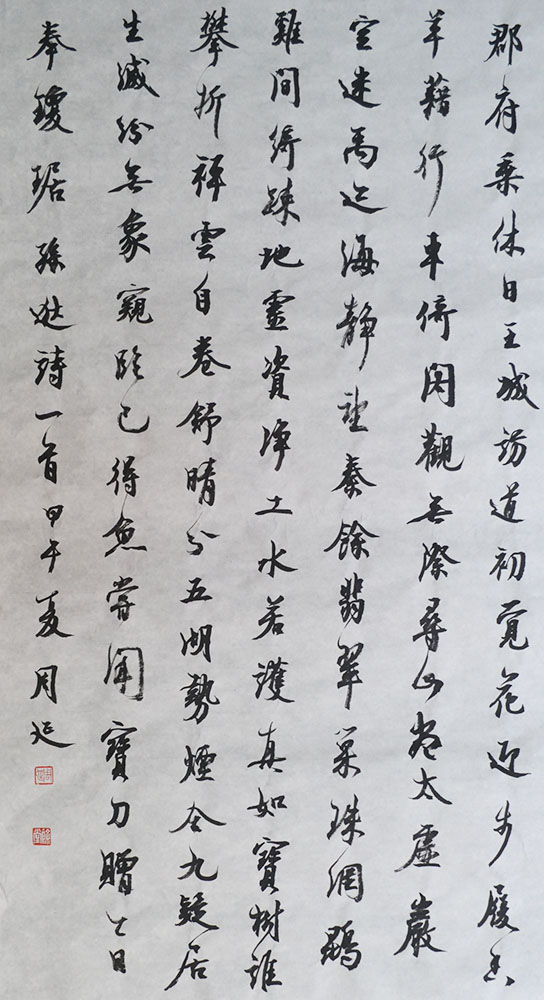 郡府乘休日王城訪道初覺花迎步履香
草藉行車倚閣觀無際尋山盡太虛巖
空迷禹迹海靜望秦餘翡翠巢珠網鵾
雞間綺疎地靈資淨土水若護真如寶樹誰
攀折禪雲自卷舒晴分五湖勢煙合九疑居
生滅紛無象窺臨已得魚嘗聞寶刀贈今日
奉瓊琚 孫逖詩一首 甲午夏周延